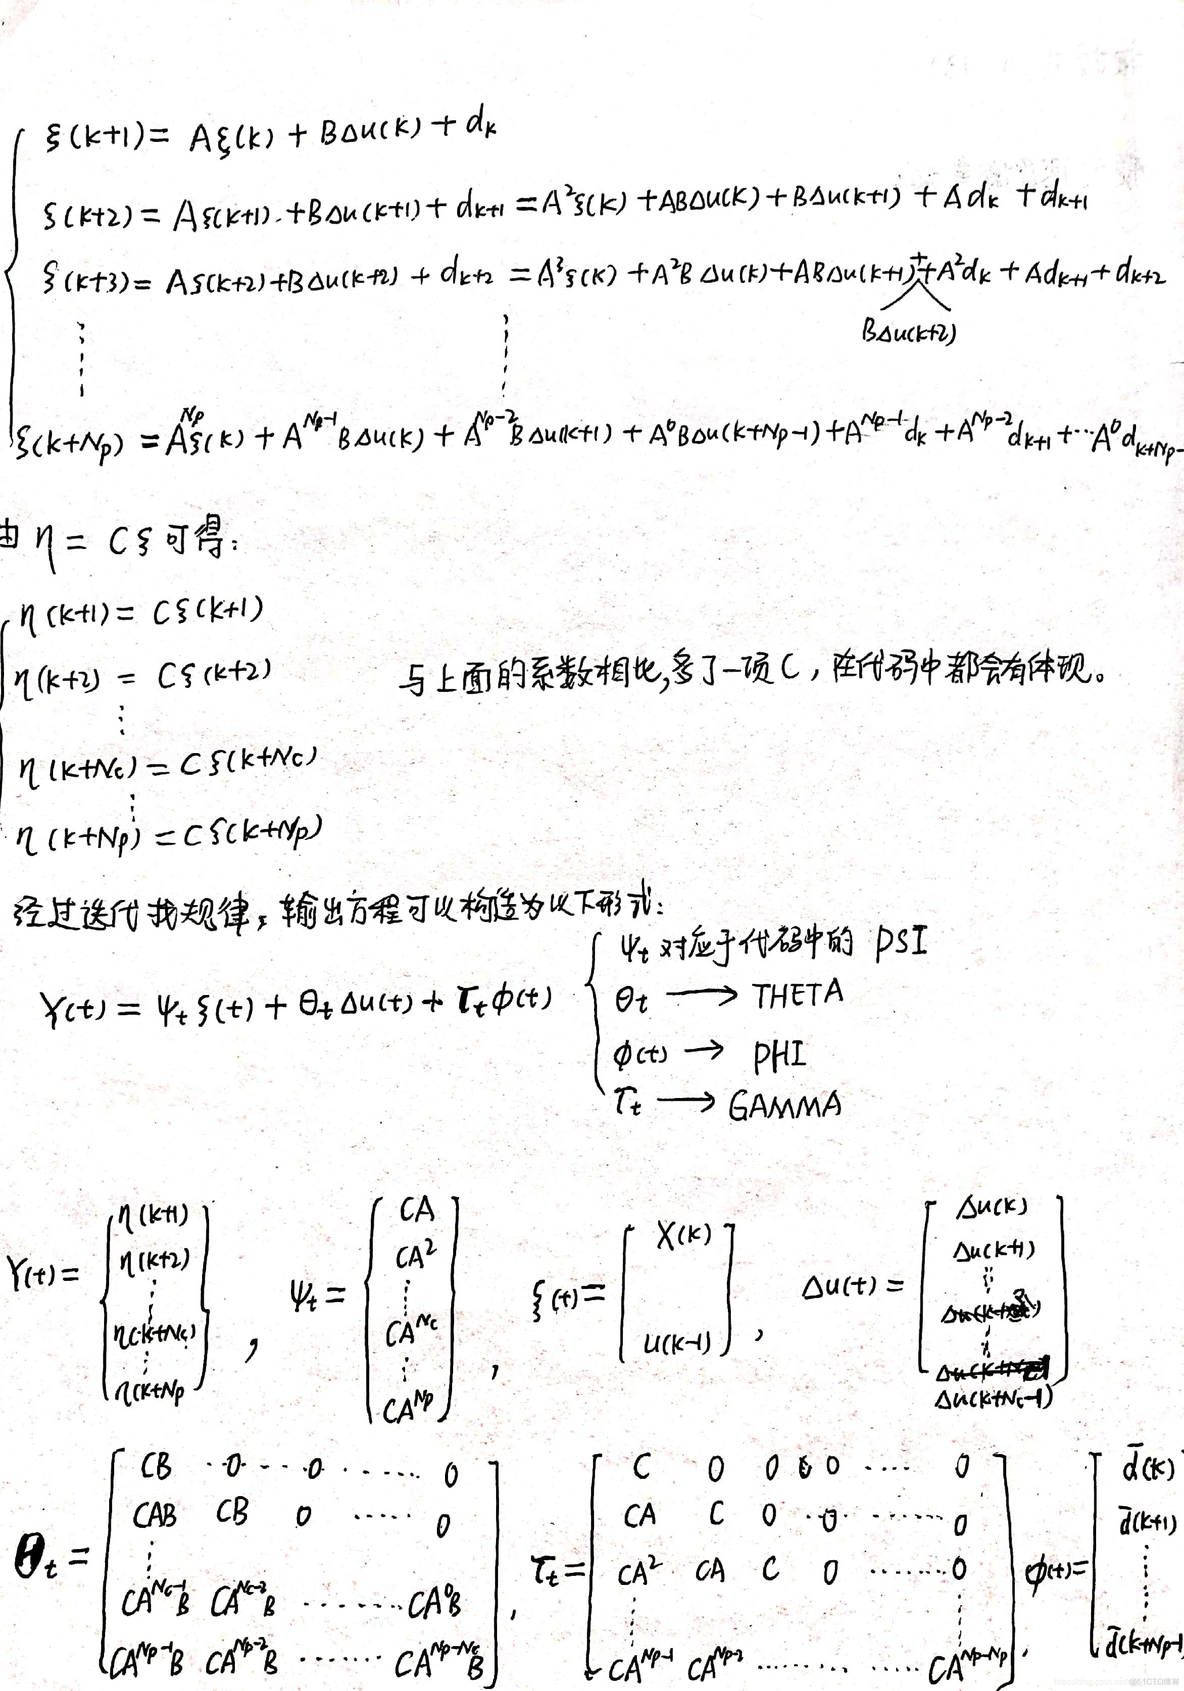 ξ(k+1) = Aξ(k) + BΔu(k) + dₖ
ξ(k+2) = Aξ(k+1) + BΔu(k+1) + dₖ₊₁ = A²ξ(k) + ABΔu(k) + BΔu(k+1) + Adₖ + dₖ₊₁
ξ(k+3) = Aξ(k+2) + BΔu(k+2) + dₖ₊₂ = A³ξ(k) + A²BΔu(k) + ABΔu(k+1) + + A²dₖ + Adₖ₊₁ + dₖ₊₂
BΔu(k+2)
⋮ ⋮
ξ(k+Np) = A^Np ξ(k) + A^(Np-1) BΔu(k) + A^(Np-2) BΔu(k+1) + A⁰BΔu(k+Np-1) + A^(Np-1) dₖ + A^(Np-2) dₖ₊₁ + ⋯ A⁰ d_(k+Np-
由 η = Cξ 可得:
η(k+1) = Cξ(k+1)
η(k+2) = Cξ(k+2) 与上面的系数相比,多了一项C,在代码中都会有体现。
⋮
η(k+Nc) = Cξ(k+Nc)
⋮
η(k+Np) = Cξ(k+Np)
经过迭代找规律,输出方程可以构造为以下形式:
Y(t) = ψₜ ξ(t) + Θₜ Δu(t) + τₜ φ(t)
ψₜ 对应于代码中的 PSI
θₜ → THETA
φ(t) → PHI
τₜ → GAMMA
Y(t) = [η(k+1) η(k+2) ⋮ η(k+Nc) ⋮ η(k+Np] , ψₜ = [CA CA² ⋮ CA^Nc ⋮ CA^Np] , ξ(t) = [X(k) u(k-1)] , Δu(t) = [Δu(k) Δu(k+1) ⋮ ⋮ Δu(k+Nc-1)]
Θₜ =
CB 0 0 ⋯ 0
CAB CB 0 ⋯ 0
⋮
CA^(Nc-1)B CA^(Nc-2)B ⋯ CA⁰B
CA^(Np-1)B CA^(Np-2)B ⋯ CA^(Np-Nc)B ,
τₜ =
C 0 0 0 ⋯ 0
CA C 0 0 ⋯ 0
CA² CA C 0 ⋯ 0
⋮ ⋮
CA^(Np-1) CA^(Np-2) ⋯ CA^(Np-Np) ,
φ(t) =
d̄(k)
d̄(k+1)
⋮
d̄(k+Np-1
@51CTO博客